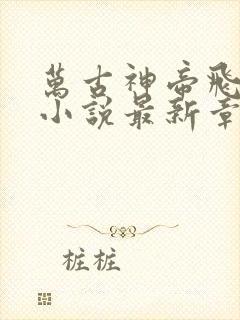 萬古神帝飛
小說最新章
桩桩